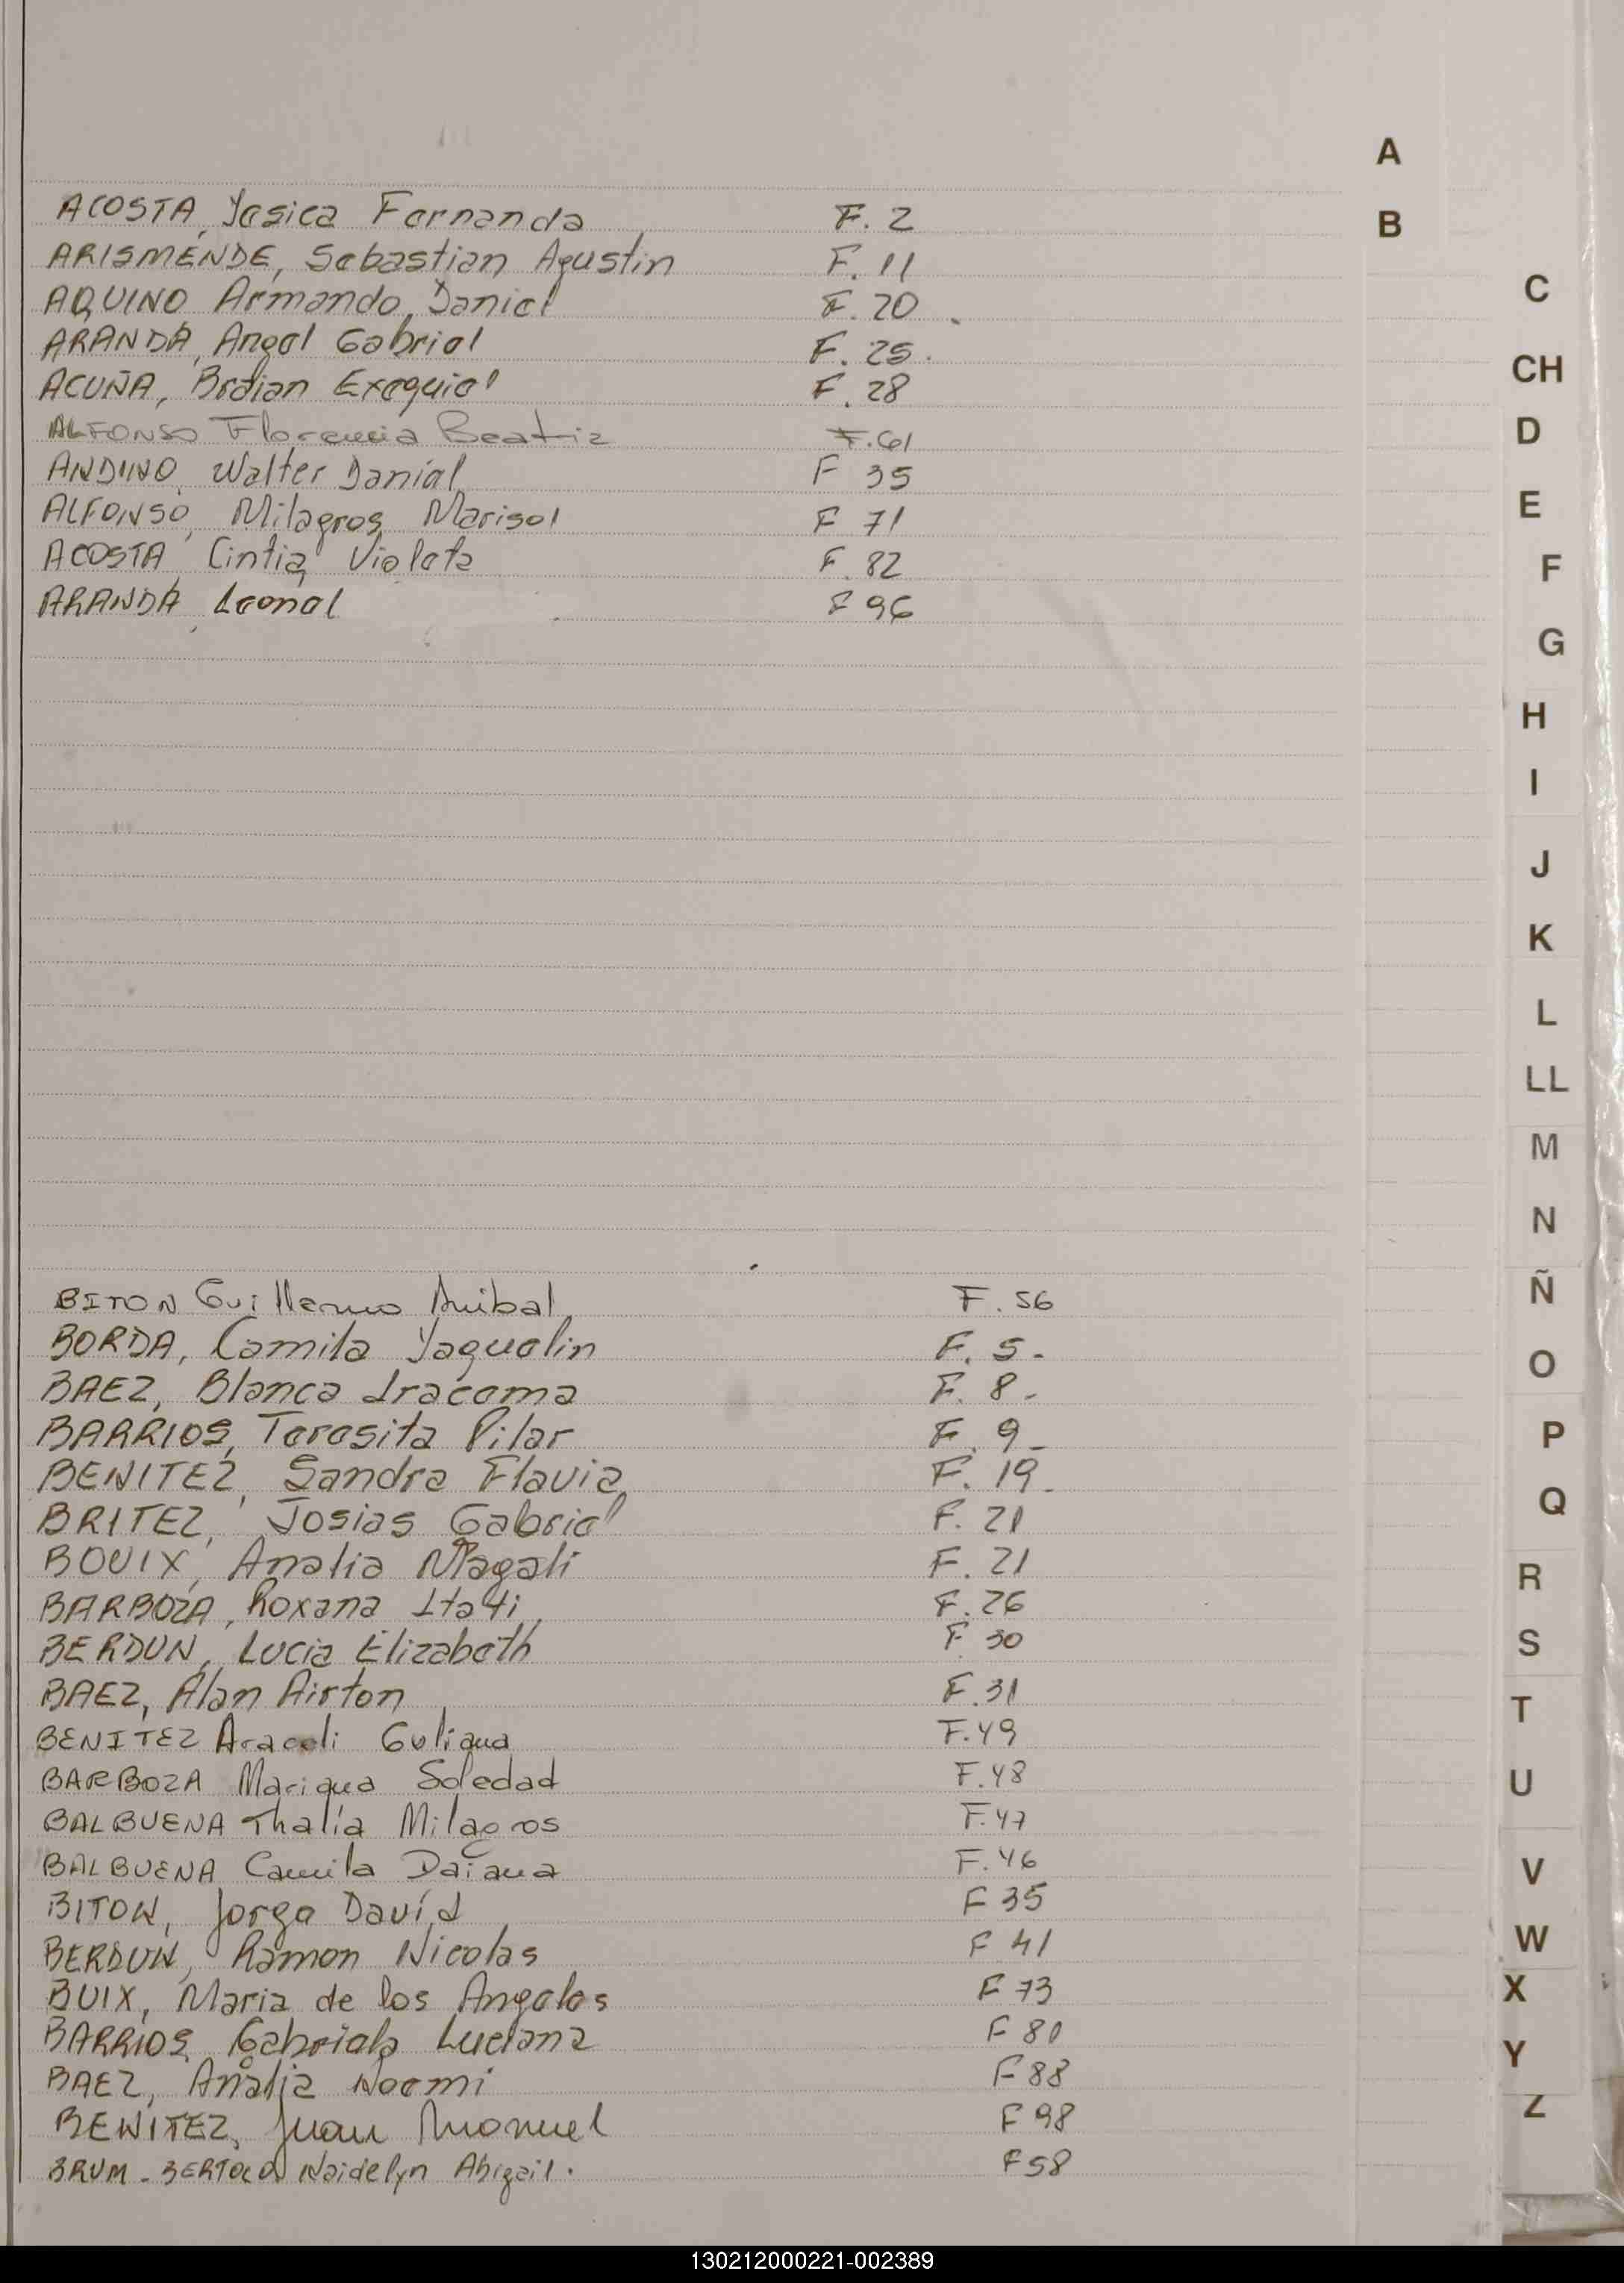 A
ACOSTA, Yesica Fernanda F. 2
B
ARISMENDE, Sebastian Agustin F. 11
C
AQUINO Armando Daniel F. 20
ARANDA, Angel Gabriel F. 25.
CH
ACUÑA, Braian Exequiel F. 28
D
ALFONSO Florencia Beatriz F.61
ANDINO, Walter Daniel F 35
E
ALFONSO, Milagros Marisol F 71
ACOSTA Cintia Violeta F. 82
F
ARANDA, Leonel F 96
G
H
I
J
K
L
LL
M
N
Ñ
BITON Guillermo Anibal F. 56
BORDA, Camila Yaquelin F. 5-
O
BAEZ, Blanca Iracema F. 8-
BARRIOS, Teresita Pilar F. 9-
P
BENITEZ, Sandra Flavia F. 19-
Q
BRITEZ, Josias Gabriel F. 21
BOUIX, Analia Magali F. 21
R
BARBOZA, Roxana Itati F. 26
BERDUN, Lucia Elizabeth F 30
S
BAEZ, Alan Airton F.31
T
BENITEZ Araceli Guliana F.49
BARBOZA Mariana Soledad F.48
U
BALBUENA Thalía Milagros F.47
BALBUENA Camila Daiana F.46
V
BITON, Jorge David F 35
W
BERDUN, Ramon Nicolas F 41
BUIX, Maria de los Angeles F 73
X
BARRIOS, Gabriela Luciana F 80
Y
BAEZ, Analia Noemi F 88
Z
BENITEZ, Juan Manuel F 98
BRUM - Naidelyn Abigail. F 58
130212000221-002389